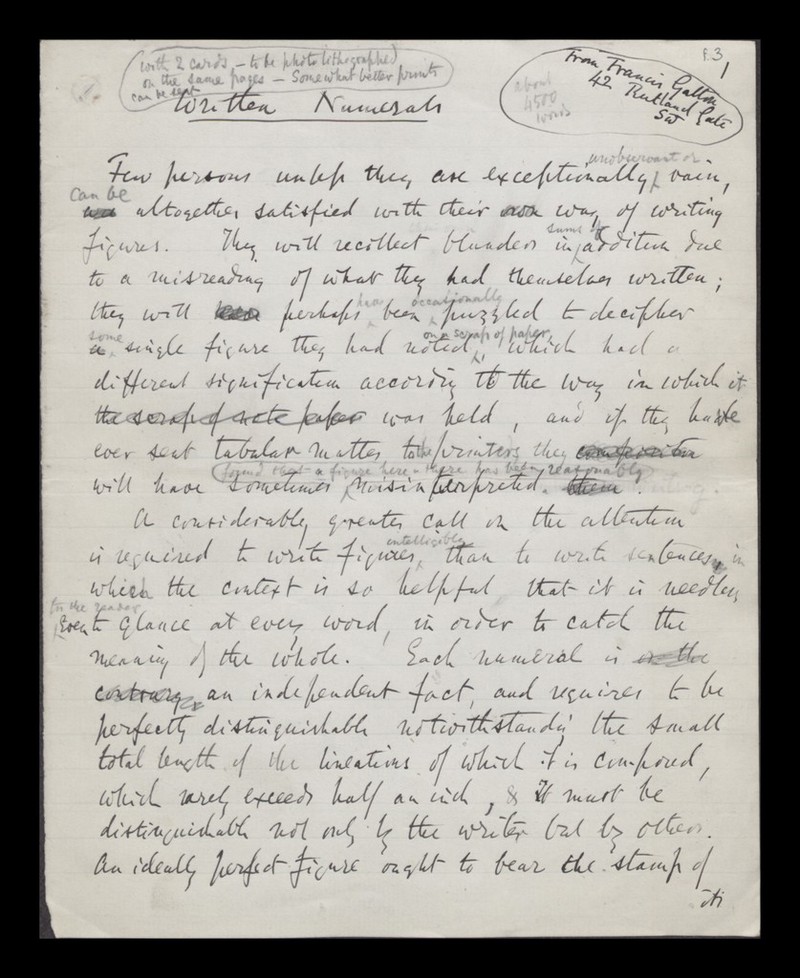 with 2 cards – to be photolithographed
on the same pages – Somewhat better prints
can be sent
f.3
1
From Francis Galton
42 Rutland Gate
SW
about
4500
words
Written Numerals
unobservant or
Few persons unless they are exceptionally vain,
can be
altogether satisfied with their own way of writing
sums of
figures. They will recollect blunders in addition due
to a misreading of what they had themselves written;
have occasionally
they will perhaps been puzzled to decipher
some on a scrap of paper
a single figure they had noted, which had a
different signification according to the way in which it
the scrap of note paper was held, and if they have
ever sent tabular matter to the printers they
found that a figure here & there has been reasonably
will have sometimes misinterpreted them.
A considerably greater call on the attention
intelligibly
is required to write figures, than to write sentences, in
which the context is so helpful that it is needless
for the reader
even to glance at every word, in order to catch the
meaning of the whole. Each numeral is on the
contrary, an independent fact, and requires to be
perfectly distinguishable notwithstanding the small
total length of the lineations of which it is composed,
which rarely exceeds half an inch, & it must be
distinguishable not only by the writer but by others.
An ideally perfect figure ought to bear the stamp of
its